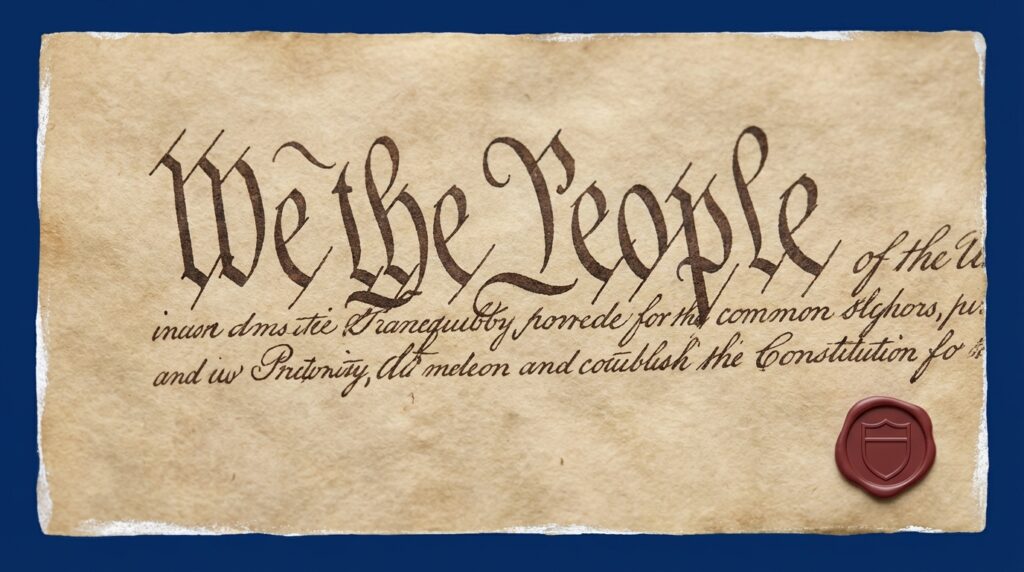 We the People of the U
inusn dms itie Tranequibby, porrede for the common slghors, pu
and iuv Pritonizy, do meleon and couublish the Constitution fo